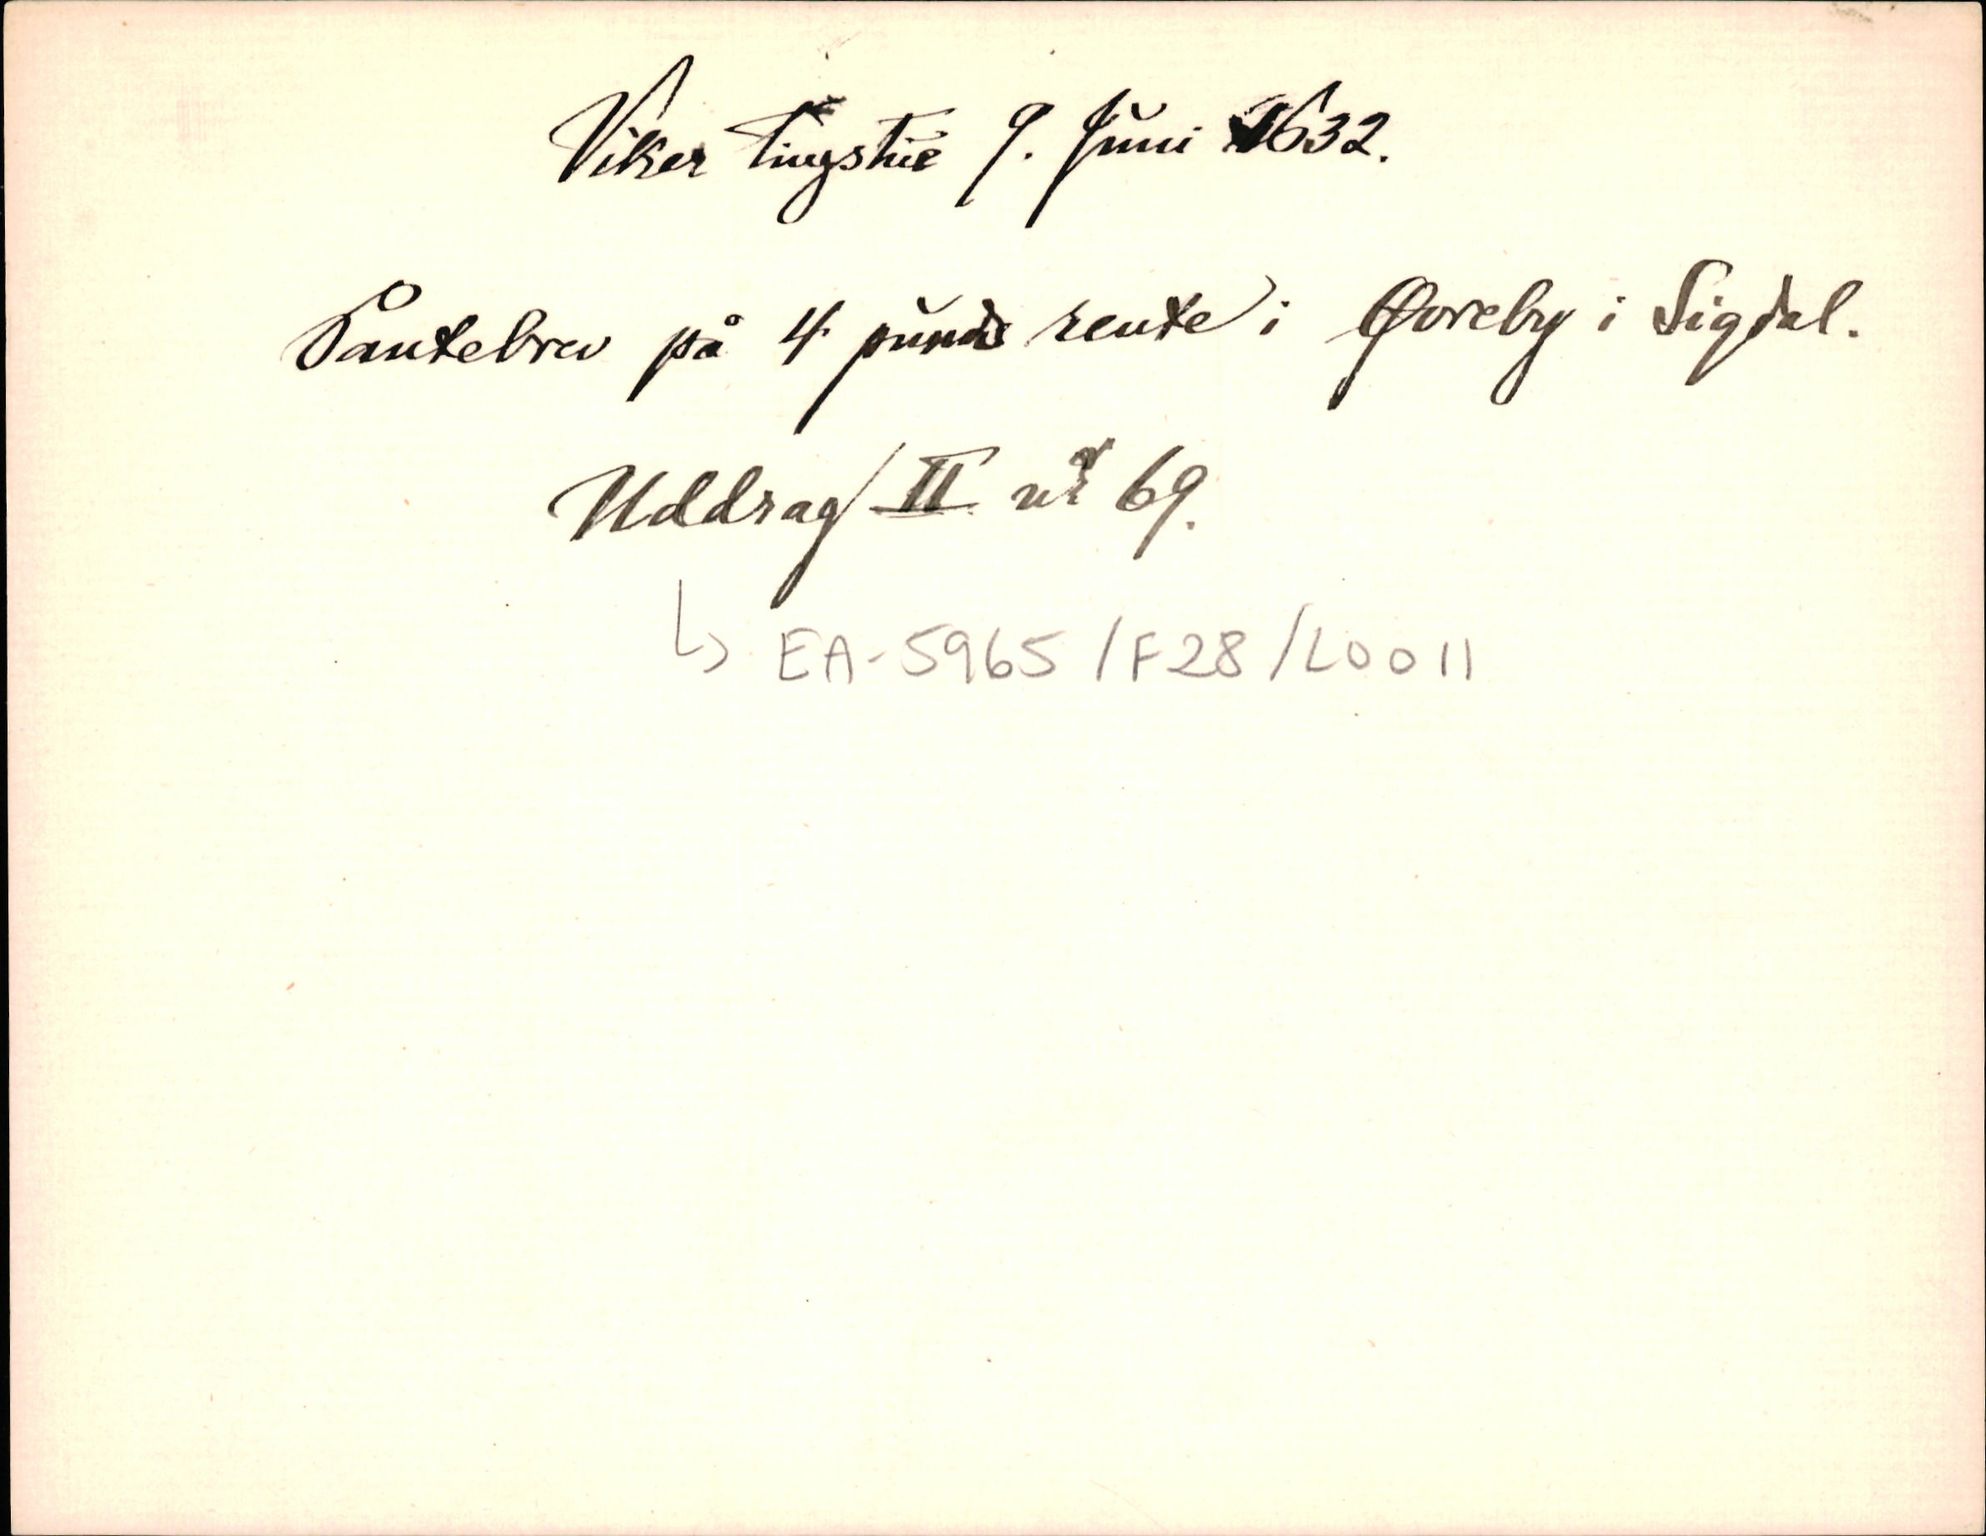 Viker Tingstue 9. Juni 1632.
Pantebrev på 4 punds rente i Øvreby i Sigdal.
Uddrag II nr 69.
↳ EA-5965/F28/L0011